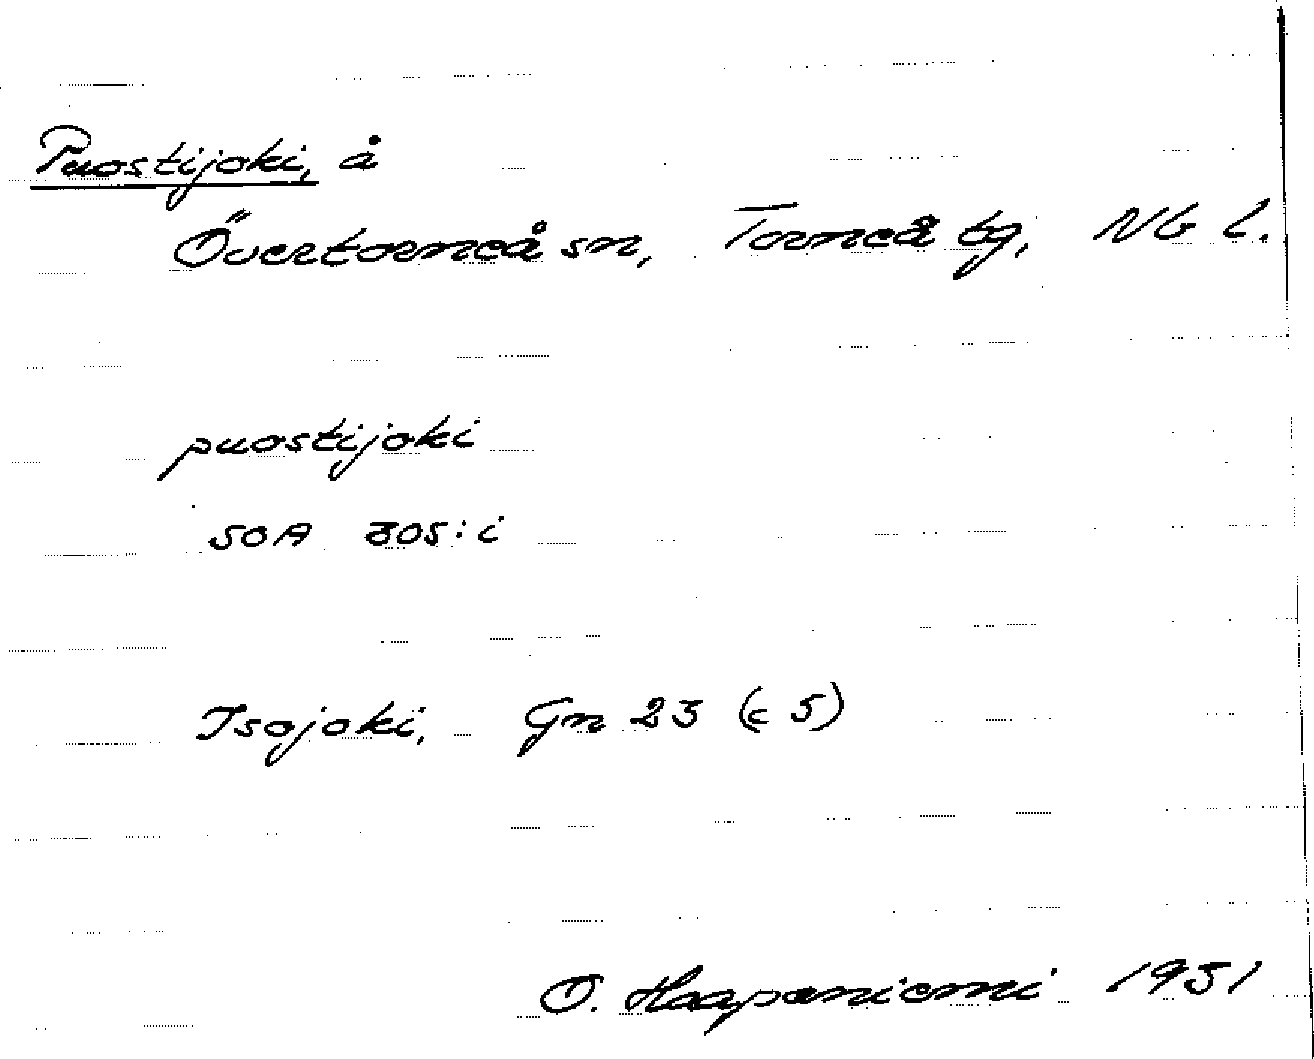 Puostijoki, å
Övertorneå sn, Torneå tg, Nb l.
puostijoki
SOA 305:i
Isojoki, Gn 23 (c 5)
O. Haapaniemi 1951